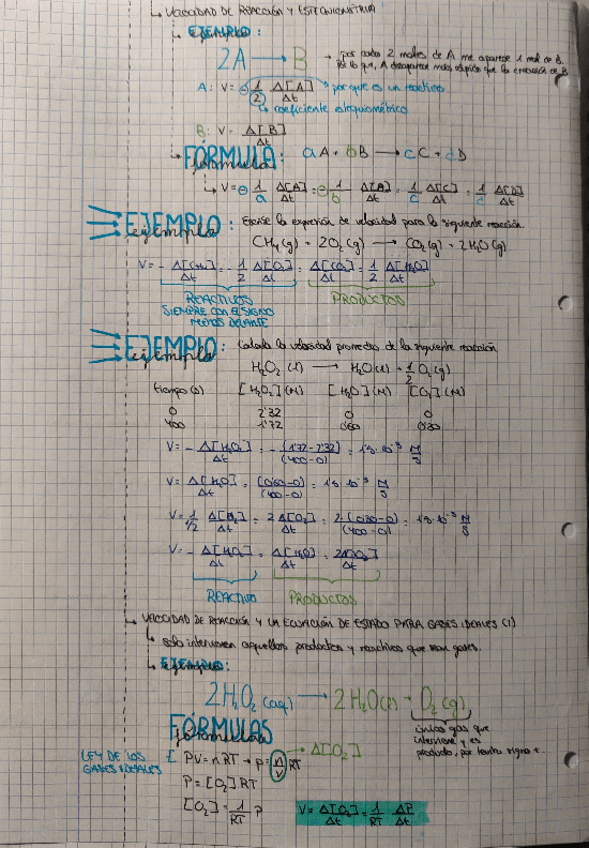 ↳ VELOCIDAD DE REACCIÓN Y ESTEQUIOMETRIA
↳ EJEMPLO:
2A → B → por cada 2 moles de A me aparece 1 mol de B.
Por lo que, A desaparece más rápido que la creación de B
A: V = ⊖ 1/2 Δ[A]/Δt → por que es un reactivo
↳ coeficiente estequiométrico
B: V = Δ[B]/Δt
↳ FÓRMULA: aA + bB → cC + dD
↳ V = ⊖ 1/a Δ[A]/Δt = ⊖ 1/b Δ[B]/Δt = 1/c Δ[C]/Δt = 1/d Δ[D]/Δt
EJEMPLO: Escribe la expresión de velocidad para la siguiente reacción
CH₄(g) + 2O₂(g) → CO₂(g) + 2H₂O(g)
V = - Δ[CH₄]/Δt = - 1/2 Δ[O₂]/Δt = Δ[CO₂]/Δt = 1/2 Δ[H₂O]/Δt
REACTIVOS PRODUCTOS
SIEMPRE CON EL SIGNO
MENOS DELANTE
EJEMPLO: Calcula la velocidad promedio de la siguiente reacción
H₂O₂(l) → H₂O(l) + 1/2 O₂(g)
tiempo (s) [H₂O₂](M) [H₂O](M) [O₂](M)
0 2'32 0 0
400 1'72 0'60 0'30
V = - Δ[H₂O₂]/Δt = -(1'72 - 2'32)/(400 - 0) = 1'5·10⁻³ M/s
V = Δ[H₂O]/Δt = (0'60 - 0)/(400 - 0) = 1'5·10⁻³ M/s
V = 1/½ Δ[O₂]/Δt = 2Δ[O₂]/Δt = 2·(0'30 - 0)/(400 - 0) = 1'5·10⁻³ M/s
V = - Δ[H₂O₂]/Δt = Δ[H₂O]/Δt = 2Δ[O₂]/Δt
REACTIVO PRODUCTOS
↳ VELOCIDAD DE REACCIÓN Y LA ECUACIÓN DE ESTADO PARA GASES IDEALES (I)
↳ solo intervienen aquellos productos y reactivos que sean gases.
↳ EJEMPLO:
2H₂O₂(aq) → 2H₂O(l) + O₂(g)
único gas que
interviene y es
producto, por tanto signo +.
FÓRMULAS
LEY DE LOS
GASES IDEALES
PV = nRT → P = n/V RT → Δ[O₂]
P = [O₂]RT
[O₂] = 1/RT P
V = Δ[O₂]/Δt = 1/RT ΔP/Δt